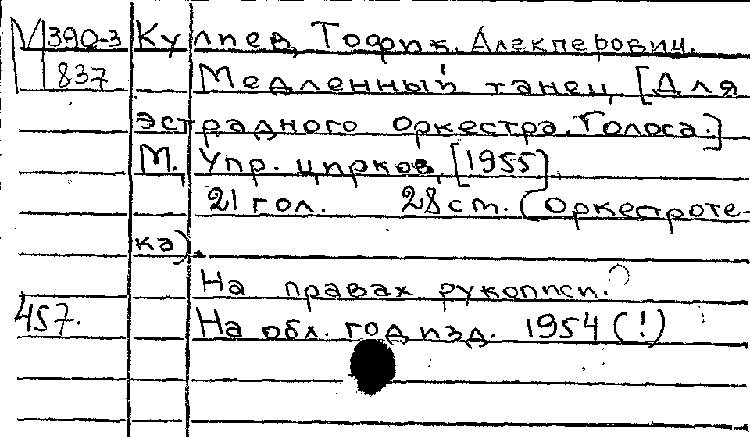 М390-3 Кулиев, Тофик Алекперович.
837 Медленный танец. [Для
эстрадного оркестра. Голоса.]
М., Упр. цирков, [1955].
21 гол. 28 cm. (Оркестроте-
ка).
На правах рукописи.
457. На обл. год изд. 1954 (!)